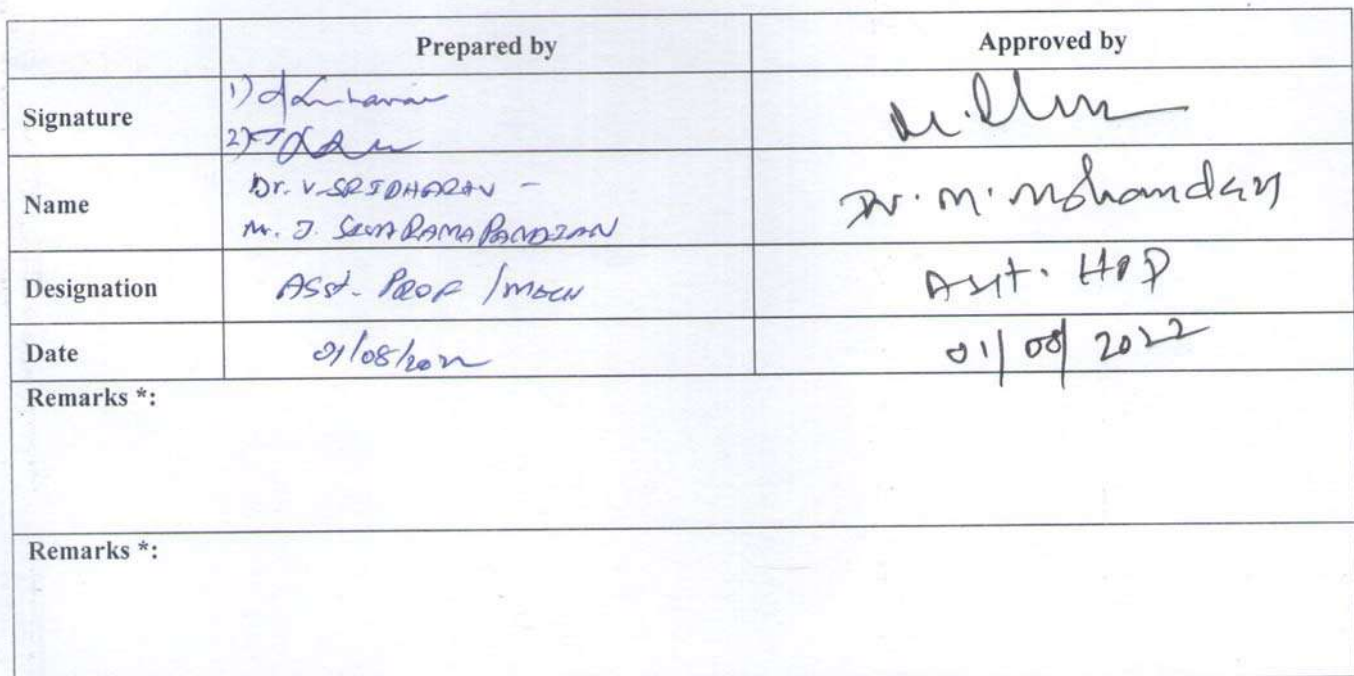 Prepared by Approved by
Signature 1) 2)
Name Dr. V. SRIDHARAN - Dr. M. Mohandass
Mr. J.
Designation Asst. PROF / MECH Asst. HOD
Date 01/08/2022 01/08/2022
Remarks *:
Remarks *: